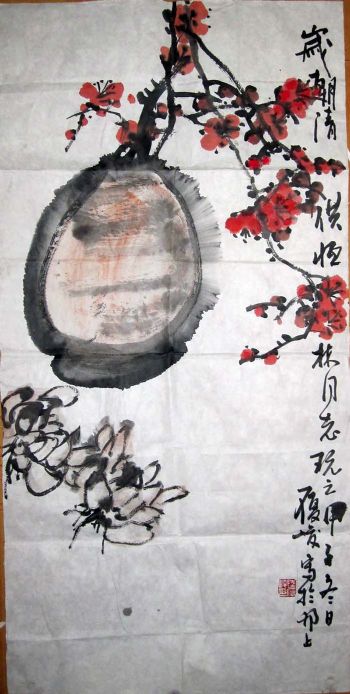 歲朝清供恒林同志玩之甲子冬日
履寫於邗上